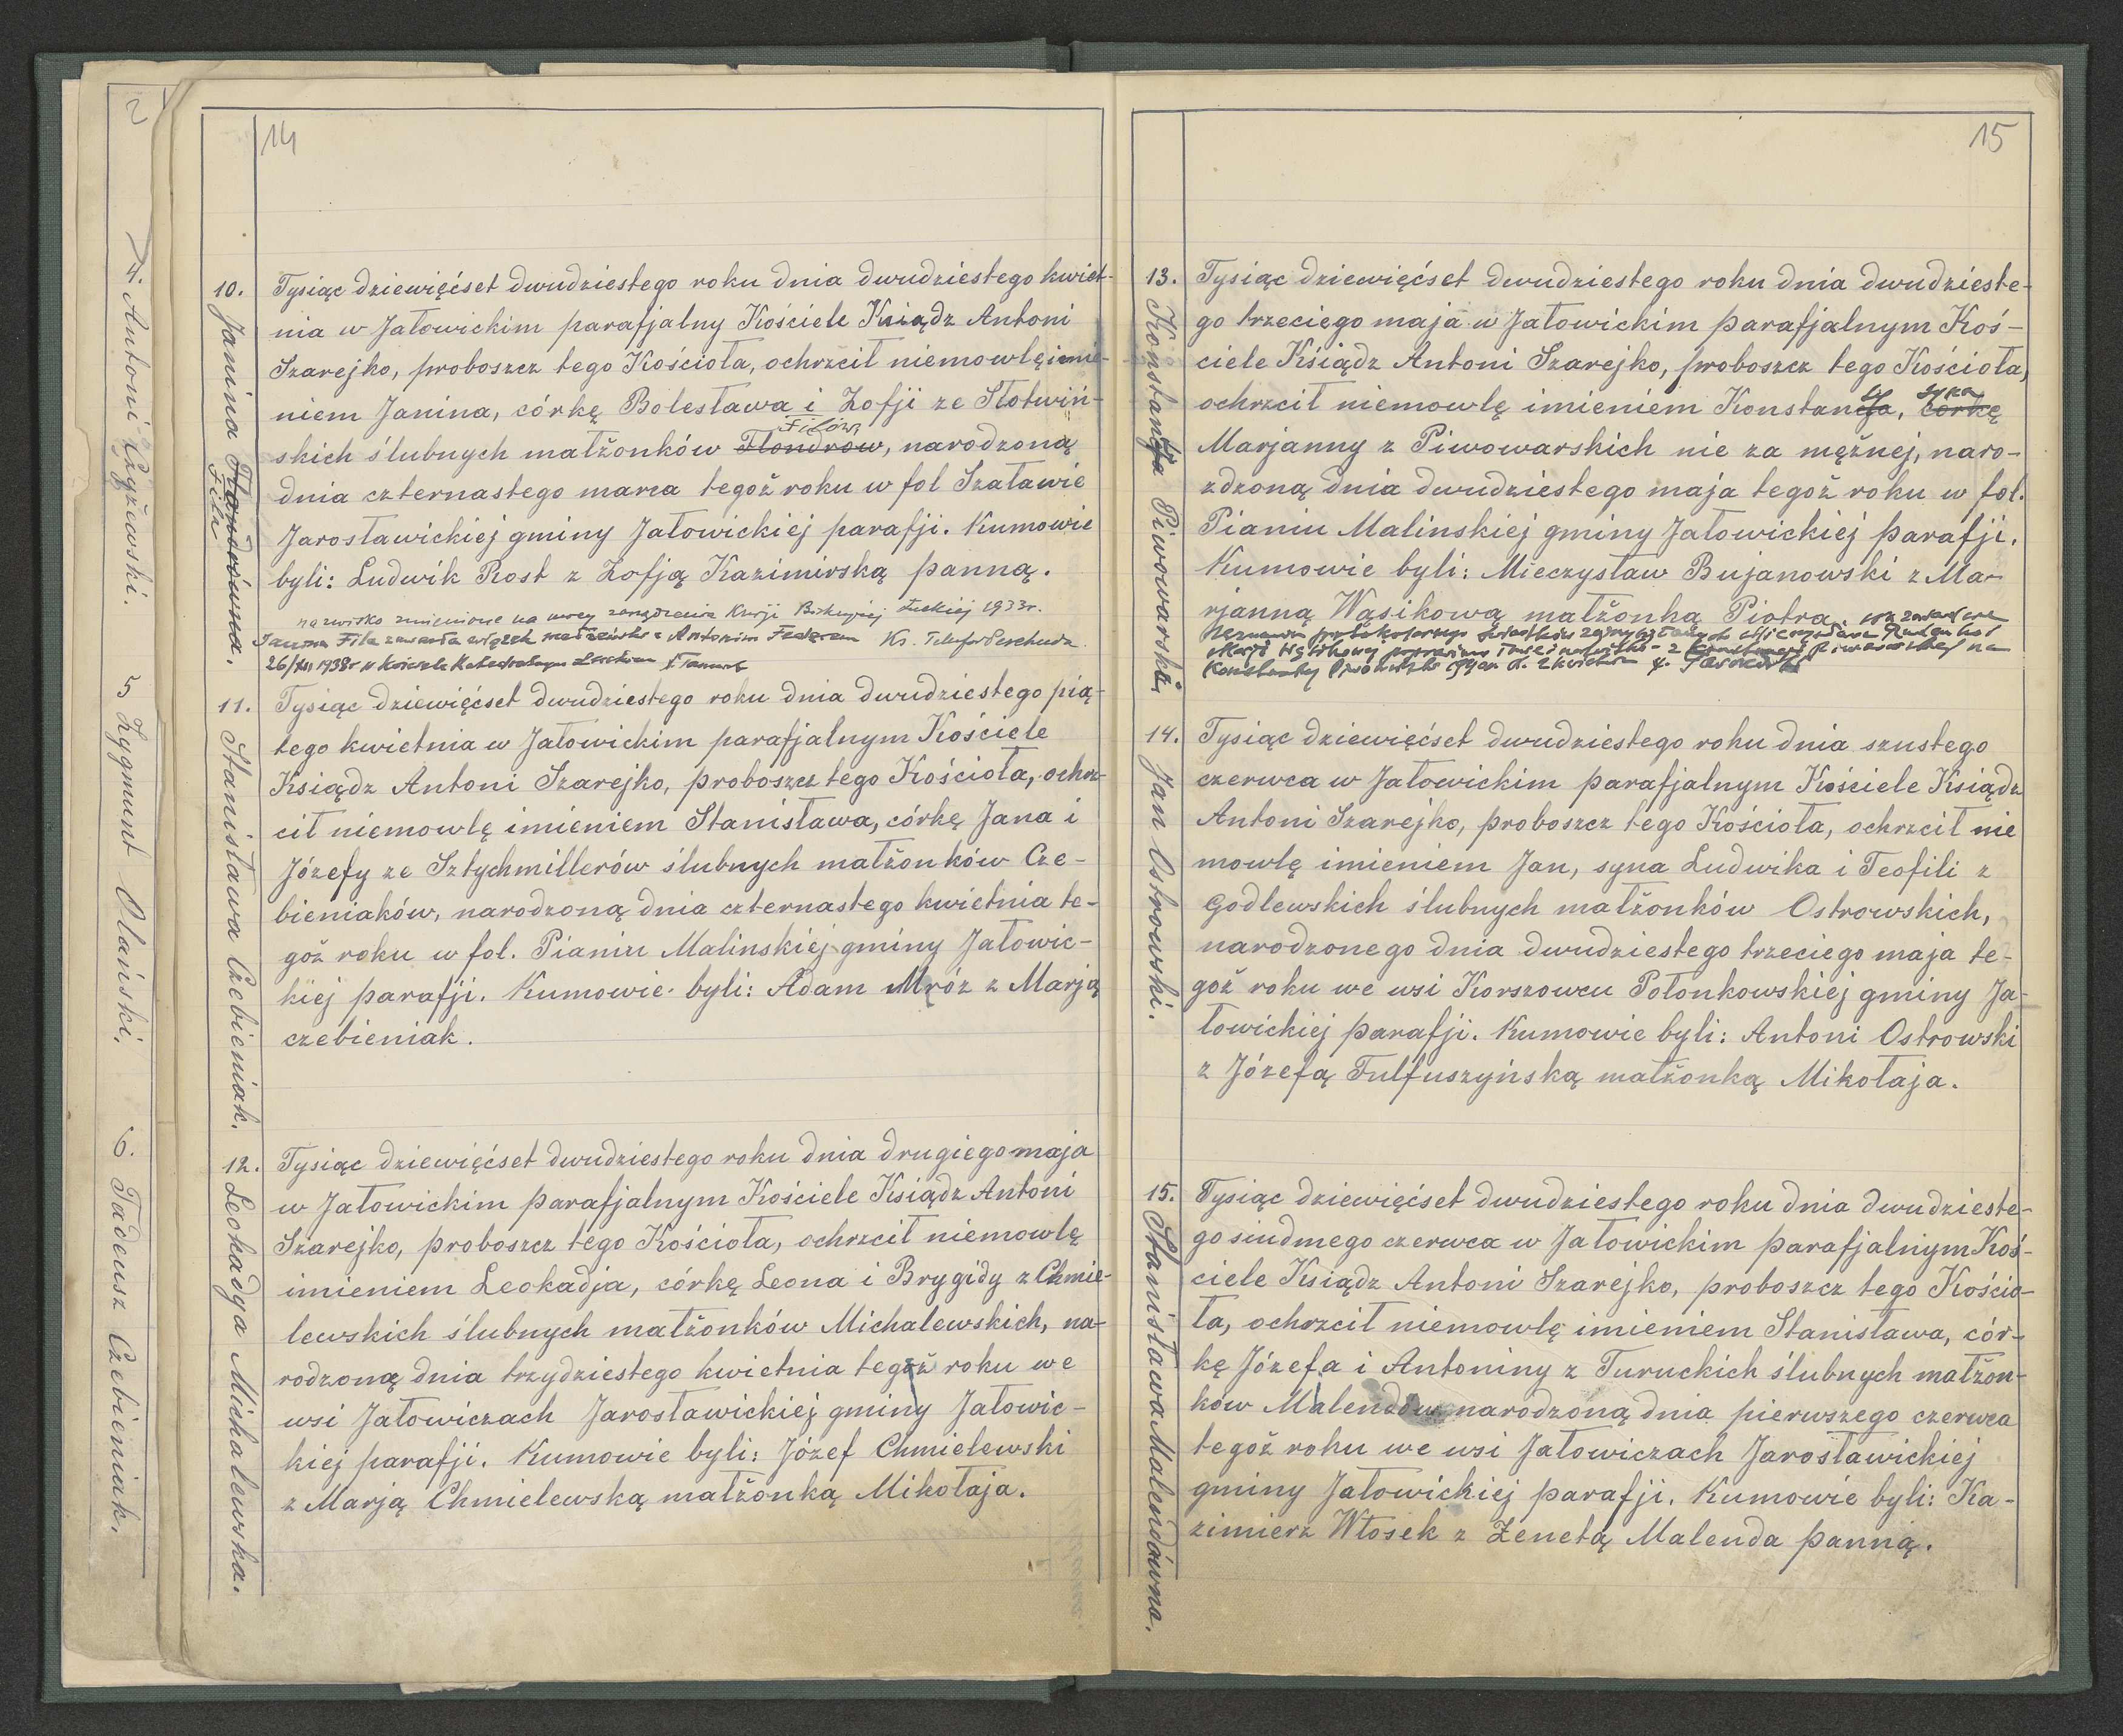 2
4. Antoni Czyżewski.
5 Zygmunt Olański.
6. Tadeusz Czebieniak.
14
10. Janina Flondrówna.
Fila
Tysiąc dziewięćset dwudziestego roku dnia dwudziestego kwiet-
nia w Jałowickim parafjalny Kościele Ksiądz Antoni
Szarejko, proboszcz tego Kościoła, ochrzcił niemowlę imie-
niem Janina, córkę Bolesława i Zofji ze Słotwiń-
Filów,
skich ślubnych małżonków Flondrów, narodzoną
dnia czternastego marca tegoż roku w fol Szaławie
Jarosławickiej gminy Jałowickiej parafji. Kumowie
byli: Ludwik Rost z Zofją Kazimirską panną.
nazwisko zmienione na mocy zarządzenia Kurji Biskupiej Łuckiej 1933r.
Janina Fila zawarła związek małżeński z Antonim Federem Ks.
26/XII 1938r w Kościele Katedralnym
11. Stanisława Czebieniak.
Tysiąc dziewięćset dwudziestego roku dnia dwudziestego pią-
tego kwietnia w Jałowickim parafjalnym Kościele
Ksiądz Antoni Szarejko, proboszcz tego Kościoła, ochrz-
cił niemowlę imieniem Stanisława, córkę Jana i
Józefy ze Sztychmillerów ślubnych małżonków Cze-
bieniaków, narodzoną dnia czternastego kwietnia te-
goż roku w fol. Pianiu Malinskiej gminy Jałowic-
kiej parafji. Kumowie byli: Adam Mróz z Marją
czebieniak.
12. Leokadya Michalewska.
Tysiąc dziewięćset dwudziestego roku dnia drugiego maja
w Jałowickim parafjalnym Kościele Ksiądz Antoni
Szarejko, proboszcz tego Kościoła, ochrzcił niemowlę
imieniem Leokadja, córkę Leona i Brygidy z Chmie-
lewskich ślubnych małżonków Michalewskich, na-
rodzoną dnia trzydziestego kwietnia tegoż roku we
wsi Jałowiczach Jarosławickiej gminy Jałowic-
kiej parafji. Kumowie byli: Józef Chmielewski
z Marją Chmielewską małżonką Mikołaja.
15
13. Konstanty Piwowarski.
Tysiąc dziewięćset dwudziestego roku dnia dwudzieste-
go trzeciego maja w Jałowickim parafjalnym Koś-
ciele Ksiądz Antoni Szarejko, proboszcz tego Kościoła,
ty syna
ochrzcił niemowlę imieniem Konstancja, córkę
Marjanny z Piwowarskich nie za mężnej, naro-
zdzoną dnia dwudziestego maja tegoż roku w fol.
Pianiu Malinskiej gminy Jałowickiej parafji.
Kumowie byli: Mieczysław Bujanowski z Ma-
rjanną Wąsikową małżonką Piotra. na zasadzie
zeznania protokolarnego świadków
Marji Wąsikowej poprawiono imię i nazwisko z Konstancji Piwowarskiej na
Konstanty
14. Jan Ostrowski.
Tysiąc dziewięćset dwudziestego roku dnia szustego
czerwca w Jałowickim parafjalnym Kościele Ksiądz
Antoni Szarejko, proboszcz tego Kościoła, ochrzcił nie
mowlę imieniem Jan, syna Ludwika i Teofili z
Godlewskich ślubnych małżonków Ostrowskich,
narodzonego dnia dwudziestego trzeciego maja te-
goż roku we wsi Korszowcu Połonkowskiej gminy Ja-
łowickiej parafji. Kumowie byli: Antoni Ostrowski
z Józefą Fulfuszyńską małżonką Mikołaja.
15. Stanisława Malendówna.
Tysiąc dziewięćset dwudziestego roku dnia dwudzieste-
go siudmego czerwca w Jałowickim parafjalnym Koś-
ciele Ksiądz Antoni Szarejko, proboszcz tego Kościo-
ła, ochrzcił niemowlę imieniem Stanisława, cór-
kę Józefa i Antoniny z Turuckich ślubnych małżon-
ków Malendów narodzoną dnia pierwszego czerwca
tegoż roku we wsi Jałowiczach Jarosławickiej
gminy Jałowickiej parafji. Kumowie byli: Ka-
zimierz Włosek z Zenetą Malenda panną.